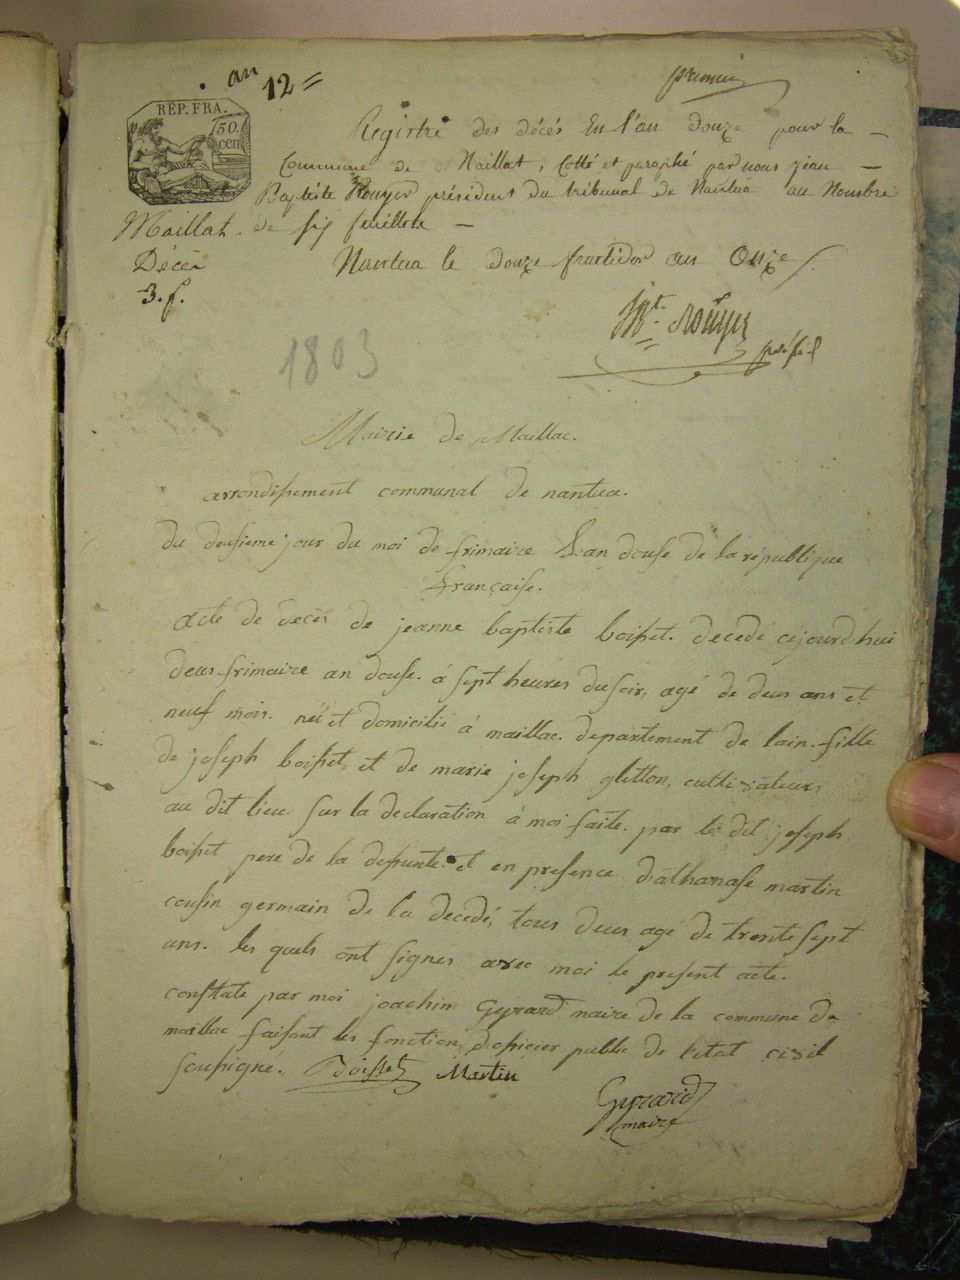 an
12 =
premier
RÉP. FRA.
50.
cen
Registre des décés En l'an douze pour la —
Commune de Maillat, Cotté et paraphé par nous jean —
Baptéste Rouyer président du tribunal de Nantua au Nombre
de six feuillets —
Maillat.
Décès
3. f.
Nantua le douze fructidor an Onze /.
Jn Bt. Rouyer
présid
1803
Mairie de Maillac.
arrondissement communal de nantua.
du deusieme jour du moi de frimaire L'an douse de la république
française.
acte de décès de jeanne baptiste boisset. décedé cejourd'hui
deus frimaire an douse. à sept heures du soir, agé de deus ans et
neuf mois. néé et domicilié à maillac. departement de lain. fille
de joseph boisset, et de marie joseph gletton, cultivateurs
au dit lieu. sur la declaration à moi faite. par le dit joseph
boisset pere de la defunte. et en presence d'athanase martin
cousin germain de la decedé, tous deus agé de trente sept
ans. les quels ont signes avec moi le present acte.
constate par moi joachim Gyrard maire de la commune de
maillac faisant les fonction, d'oficier public de l'etat civil
soussigné. Boisset Martin
Gyrard
maire